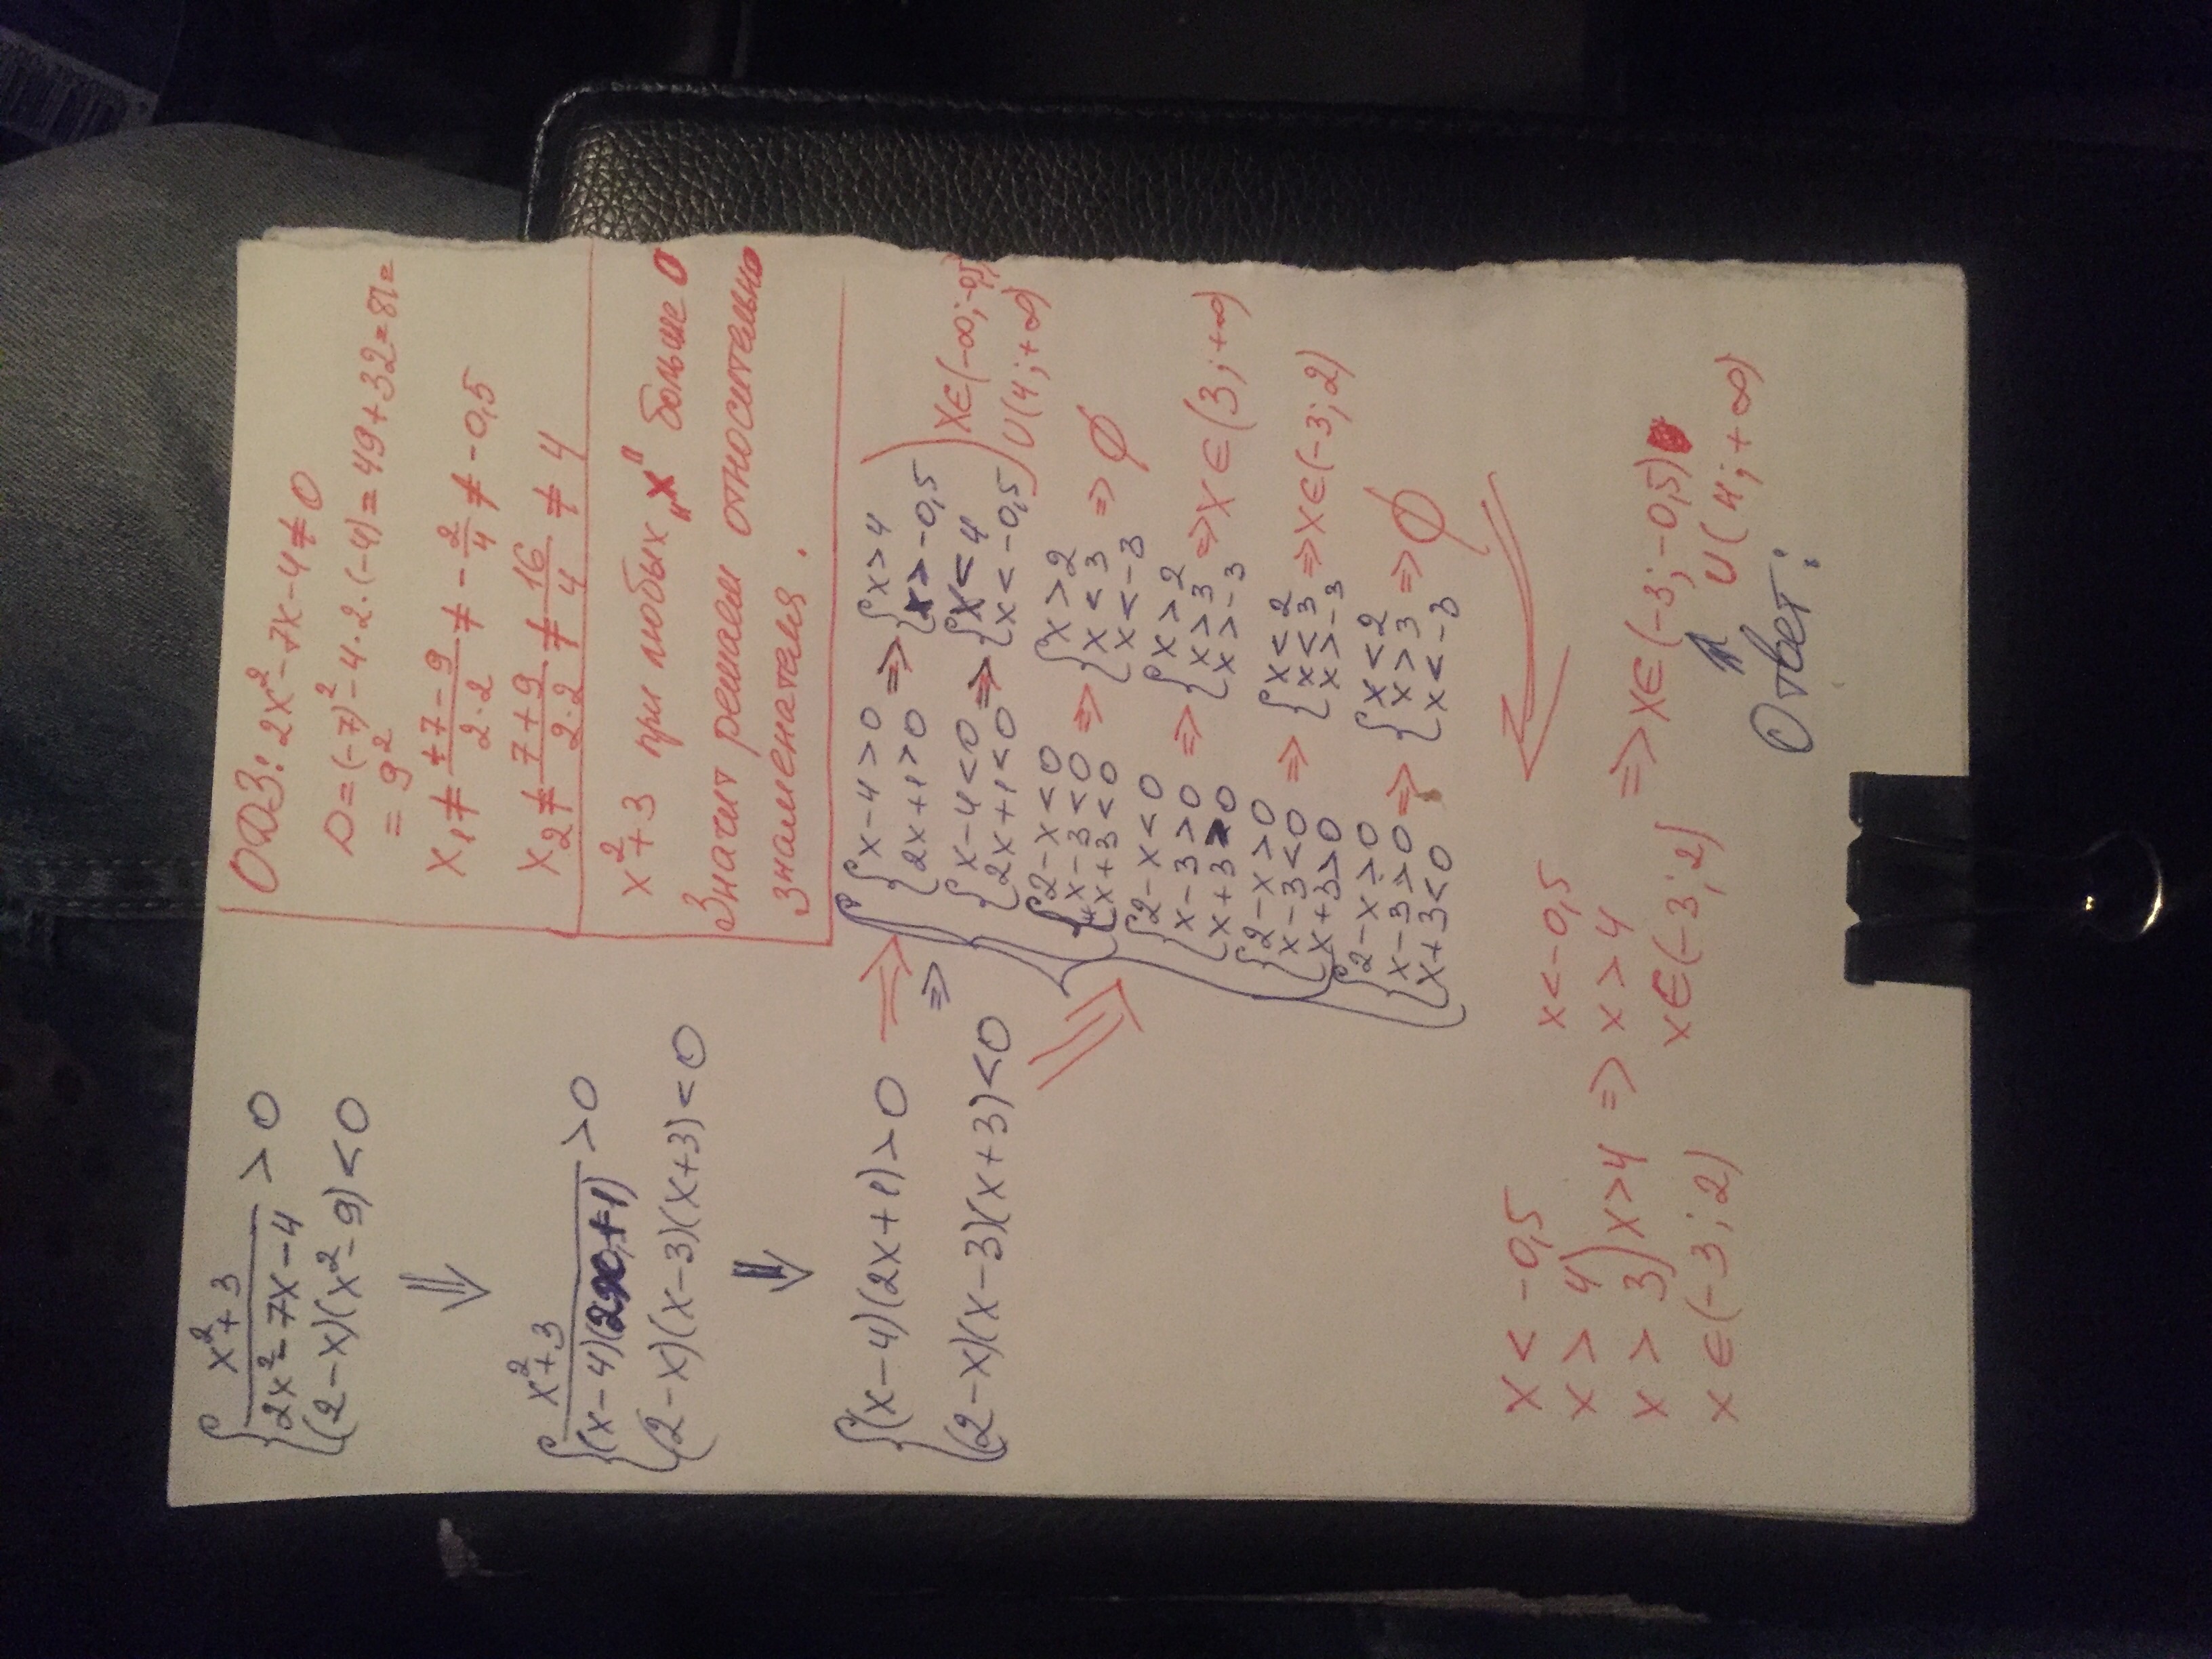 { x²+3 / 2x²-7x-4 > 0
(2-x)(x²-9)<0
⇓
{ x²+3 / (x-4)(2x+1) > 0
(2-x)(x-3)(x+3)<0
⇓
{ (x-4)(2x+1)>0 ⇒
(2-x)(x-3)(x+3)<0 ⇒
ОДЗ: 2x²-7x-4≠0
D=(-7)²-4·2·(-4)=49+32=81=
=9²
x₁≠ +7-9 / 2·2 ≠ -2/4 ≠ -0,5
x₂≠ 7+9 / 2·2 ≠ 16/4 ≠ 4
x²+3 при любых "x" больше 0
Значит решаем относительно
знаменателя.
{ x-4>0 ⇒ { x>4
2x+1>0 x>-0,5
{ x-4<0 ⇒ { x<4
2x+1<0 x<-0,5
x∈(-∞;-0,5)
∪(4;+∞)
{ 2-x<0 ⇒ { x>2
x-3<0 x<3 ⇒ ∅
x+3<0 x<-3
{ 2-x<0 ⇒ { x>2
x-3>0 x>3 ⇒ x∈(3;+∞)
x+3>0 x>-3
{ 2-x>0 ⇒ { x<2
x-3<0 x<3 ⇒ x∈(-3;2)
x+3>0 x>-3
{ 2-x>0 ⇒ { x<2
x-3>0 x>3 ⇒ ∅
x+3<0 x<-3
x < -0,5
x > 4
x > 3 ) x>4 ⇒
x∈(-3;2)
x<-0,5
x>4
x∈(-3;2)
⇒ x∈(-3;-0,5)
∪(4;+∞)
Ответ: